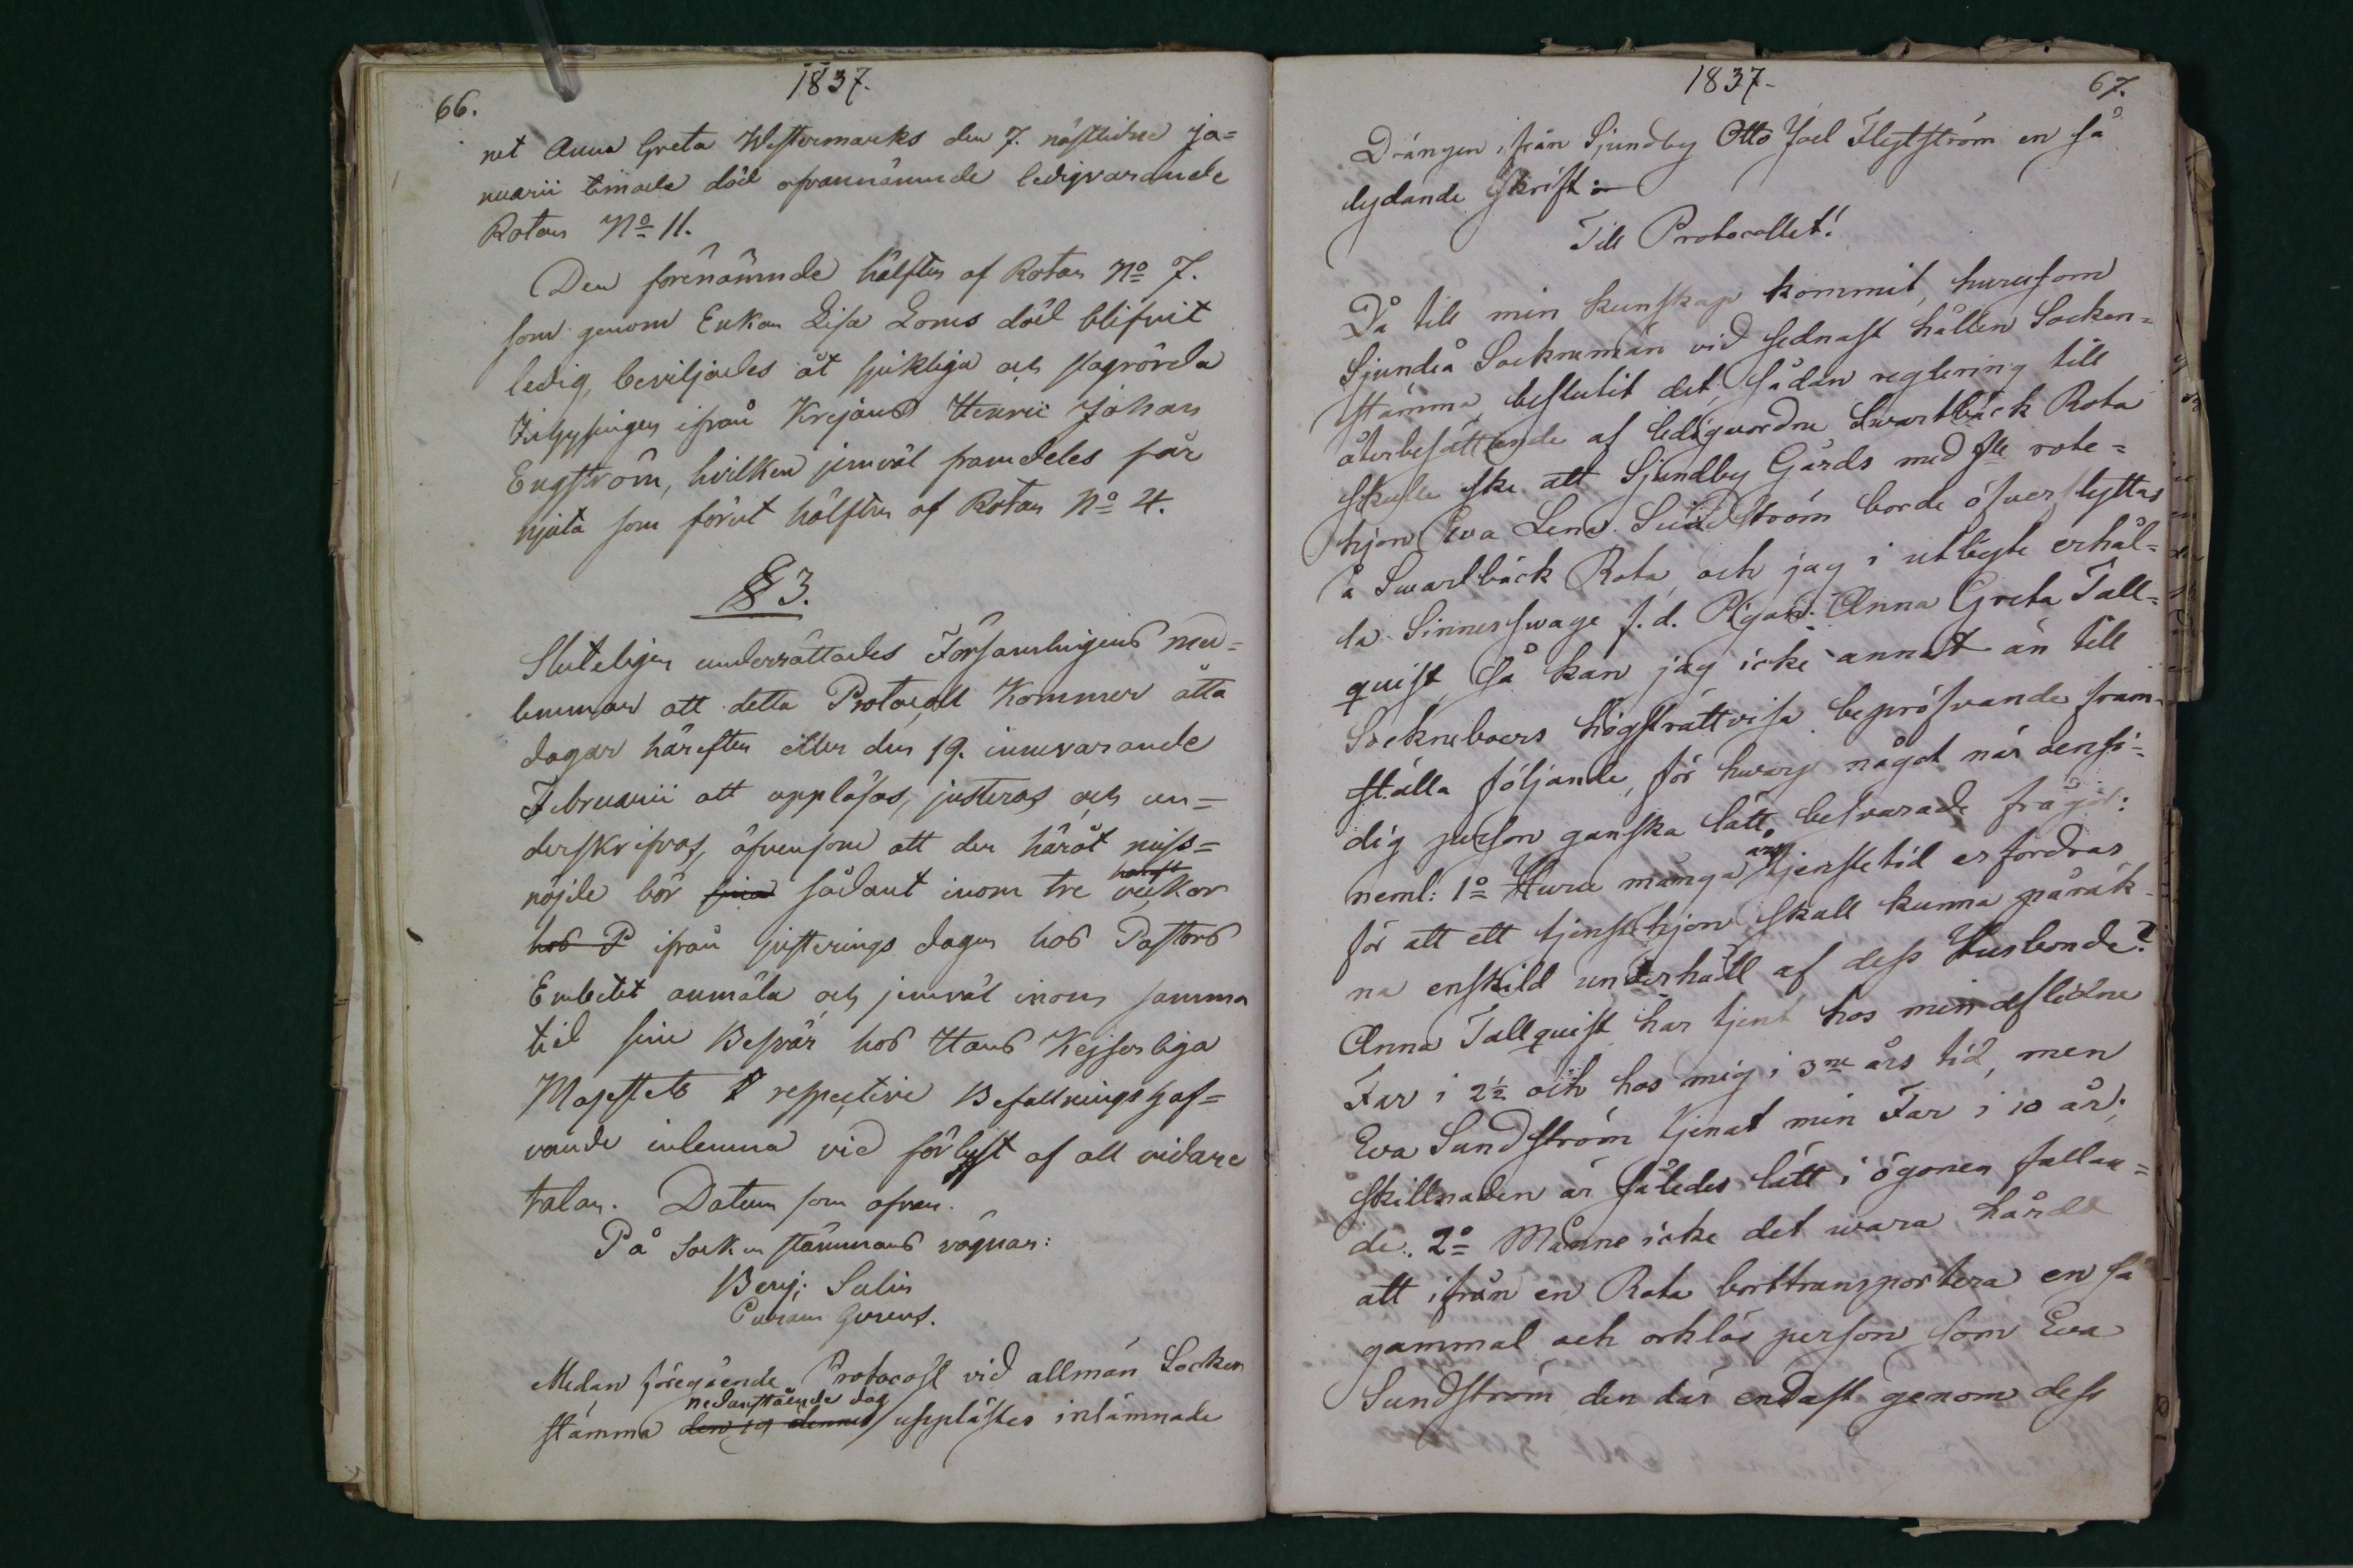 66.
1837.
net Anna Greta Westermarks den 7. nästledne Ja=
nuarii timade död ofvannämnde ledigvarande
Rotan No 11.
Den förenämnde hälften af Rotan No 7.
som genom Enkan Lisa Loms död blifvit
ledig, beviljades åt sjukliga och slagrörda
Inhysingen ifrån Krejans Henric Johan
Engström, hvilken jemväl framdeles får
njuta som förut hälften af Rotan No 4.
§ 3.
Sluteligen underrättades Församlingens med=
lemmar att detta Protocoll kommer åtta
dagar härefter eller den 19. innevarande
Februarii att uppläsas, justeras och un=
derskrifvas, äfvensom att den häråt miss=
nöjde bör sina sådant inom tre veckor
hos P ifrån justerings dagen hos Pastors
Embetet anmäla och jemväl inom samma
tid sine Besvär hos Hans Kejserliga
Majestets respective Befallningshaf=
vande inlemna vid förlust af all vidare
talan. Datum som ofvan.
På Sockenstämmans vägnar:
Benj: Salin
Curam Gerens.
Medan föregående Protocoll vid allmän Socken
nedanstående dag
stämma den 19 dennes upplästes inlämnade
1837-
67.
Drängen ifrån Sjundby Otto Joel Flytström en så
lydande Skrift:
Till Protocollet!
Då till min kunskap kommit, hurusom
Sjundeå Socknemän vid sednast hållen Socken=
stämma, beslutit det, sådan reglering till
återbesättande af ledigvordne Svartbäck Rota
skulle ske att Sjundby Gårds med fle rote=
hjon Eva Lena Sundström borde öfverflyttas
å Svartbäck Rota, och jag i utbyte erhål=
la Sinnessvage f.d. Pigan Anna Greta Tall=
quist, Så kan jag icke annat än till
Sockneboers högsträttvisa bepröfvande fram=
ställa följande, för hvarje något när oensi=
dig person ganska lätt besvarade frågor:
neml: 1o Huru många års tjenstetid erfordras
för att ett tjenstehjon skall kunna påräk=
na enskild underhåll af dess Husbonde?
Anna Tallquist har tjent hos min aflidne
Far i 2½ och hos mig i 3ne års tid, men
Eva Sundström tjenat min Far i 10 år;
skillnaden är således lätt i ögonen fallan=
de. 2o Månne icke det wara hårdt
att ifrån en Rota borttransportera en så
gammal och orklös person som Eva
Sundström, den där endast genom dess